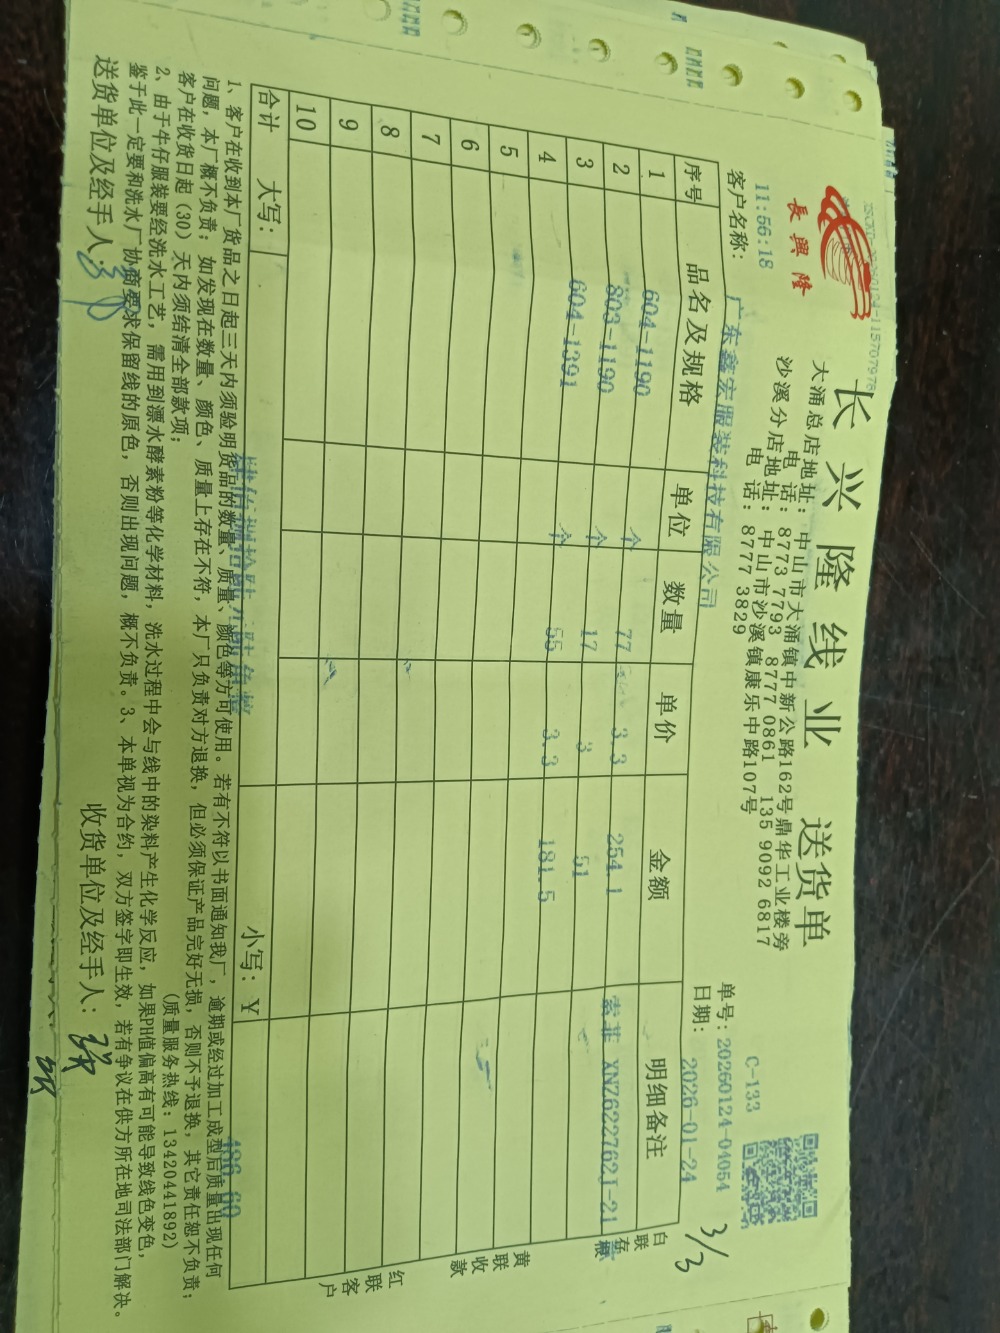 長興隆
长兴隆线业 送货单
大涌总店地址：中山市大涌镇中新公路162号鼎华工业楼旁
电 话：8773 7793 8777 0861 135 9092 6817
沙溪分店地址：中山市沙溪镇康乐中路107号
电 话：8777 3829
C-133
11:56:18
单号：20260124-04054
客户名称：广东鑫宏服装科技有限公司
日期：2026-01-24
3/3
序号 品名及规格 单位 数量 单价 金额 明细备注
1 604-1190 个 77 3.3 254.1 XNZ6227621-21
2 803-1190 个 17 3 51
3 604-1391 个 55 3.3 181.5
4
5
6
7
8
9
10
合计 大写： 小写：￥ 486.60
白联存根
黄联收款
红联客户
1、客户在收到本厂货品之日起三天内须验明货品的数量、质量、颜色等方可使用。若有不符以书面通知我厂，逾期或经过加工成型后质量出现任何
问题，本厂概不负责；如发现在数量、颜色、质量上存在不符，本厂只负责对方退换，但必须保证产品完好无损，否则不予退换，其它责任恕不负责；
客户在收货日起（30）天内须结清全部款项； （质量服务热线：13420441892）
2、由于牛仔服装要经洗水工艺，需用到漂水酵素粉等化学材料，洗水过程中会与线中的染料产生化学反应，如果PH值偏高有可能导致线色变色，
鉴于此一定要和洗水厂协商要求保留线的原色，否则出现问题，概不负责。3、本单视为合约，双方签字即生效，若有争议在供方所在地司法部门解决。
送货单位及经手人： 收货单位及经手人：